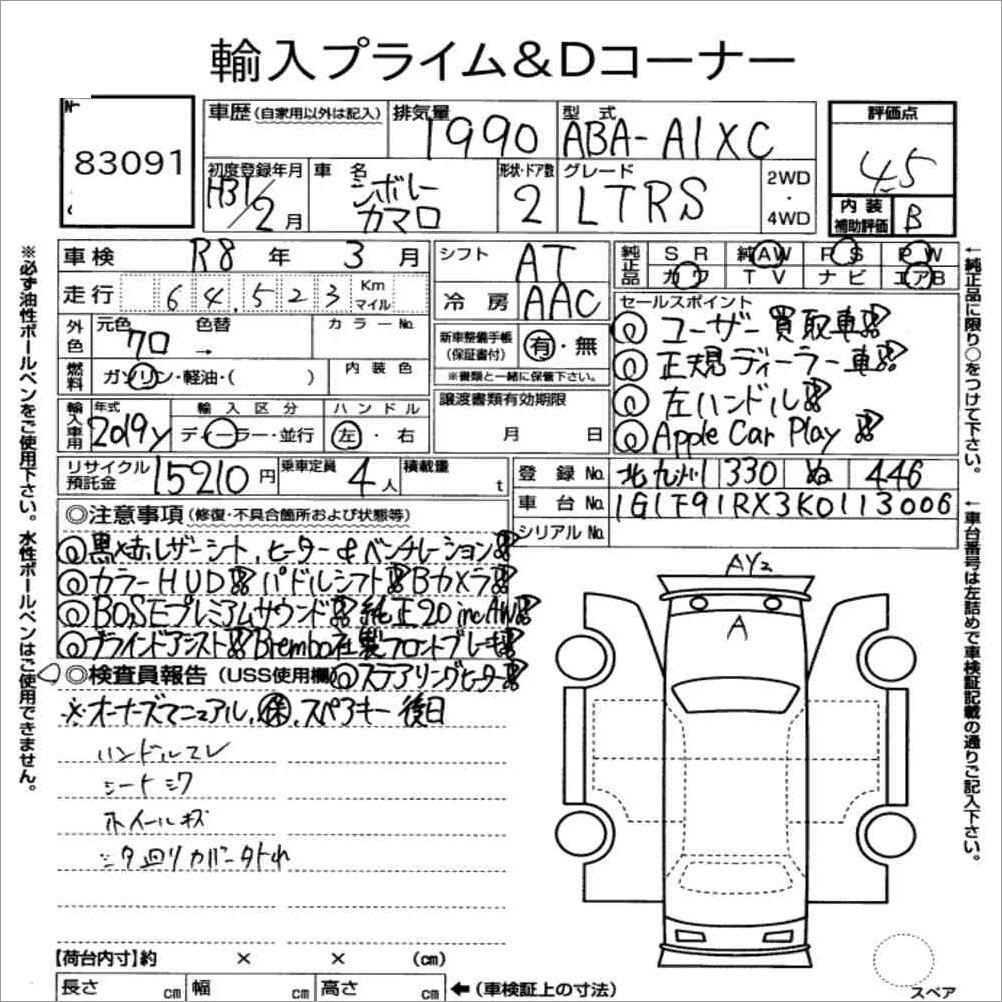 輸入プライム&Dコーナー
No
83091
車歴(自家用以外は記入)
排気量
1990
型式
ABA-A1XC
評価点
4.5
初度登録年月
H31/2月
車名
シボレー
カマロ
形状・ドア数
2
グレード
LTRS
2WD
・
4WD
内装
補助評価
B
車検 R8年 3月
シフト AT
純正品
SR 純AW PS PW
カワ TV ナビ エアB
走行 64,523 Km
マイル
冷房 AAC
セールスポイント
◎ユーザー買取車!!
◎正規ディーラー車!!
◎左ハンドル!!
◎Apple Car Play!!
外色
元色
クロ
色替
→
カラーNo.
新車整備手帳
(保証書付)
有・無
※書類と一緒に保管下さい。
燃料
ガソリン・軽油・( )
内装色
譲渡書類有効期限
月 日
輸入車用
年式
2019y
輸入区分
ディーラー・並行
ハンドル
左・右
リサイクル
預託金
15210円
乗車定員
4人
積載量
t
登録No. 北九州 330 ぬ 446
車台No. 1G1F91RX3K0113006
シリアルNo.
◎注意事項(修復・不具合箇所および状態等)
◎黒×赤レザーシート,ヒーター&ベンチレーション!!
◎カラーHUD!!パドルシフト!!Bカメラ!!
◎BOSEプレミアムサウンド!!純正20incAW!!
◎ブラインドアシスト!!Brembo社製フロントブレーキ!!
◎検査員報告(USS使用欄)
◎ステアリングヒーター!!
※オーナーズマニュアル,保,スペアキー後日
ハンドルスレ
シートシワ
ホイールキズ
シタ回りカバー外れ
AY2
A
【荷台内寸】約 × × (cm)
長さ cm 幅 cm 高さ cm
←(車検証上の寸法)
スペア
※必ず油性ボールペンをご使用下さい。水性ボールペンはご使用できません。
←純正品に限り○をつけて下さい。
←車台番号は左詰めで車検証記載の通りご記入下さい。